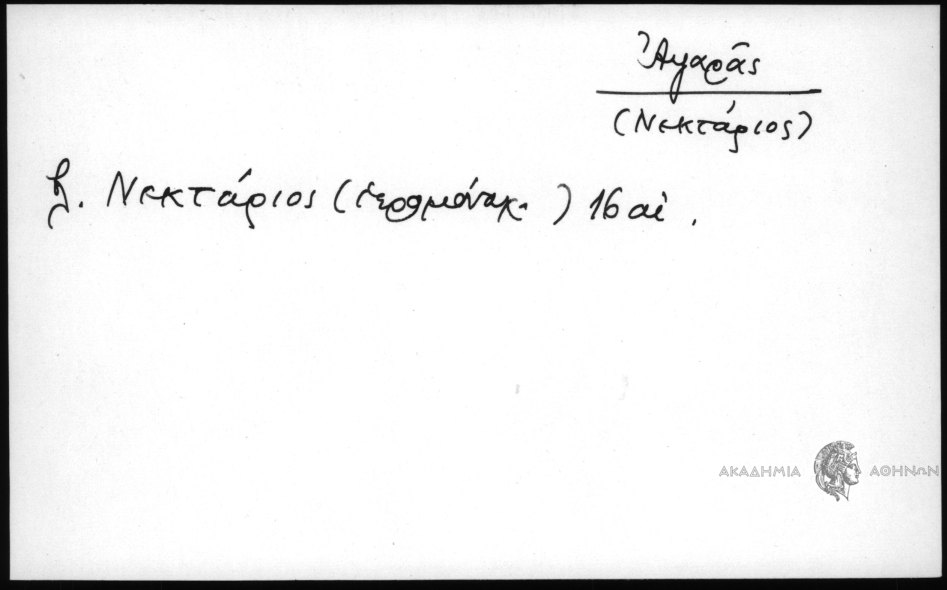 Ἀγαρᾶς
(Νεκτάριος)
β. Νεκτάριος (ἱερομόναχ. ) 16 αἰ .
ΑΚΑΔΗΜΙΑ ΑΘΗΝΩΝ